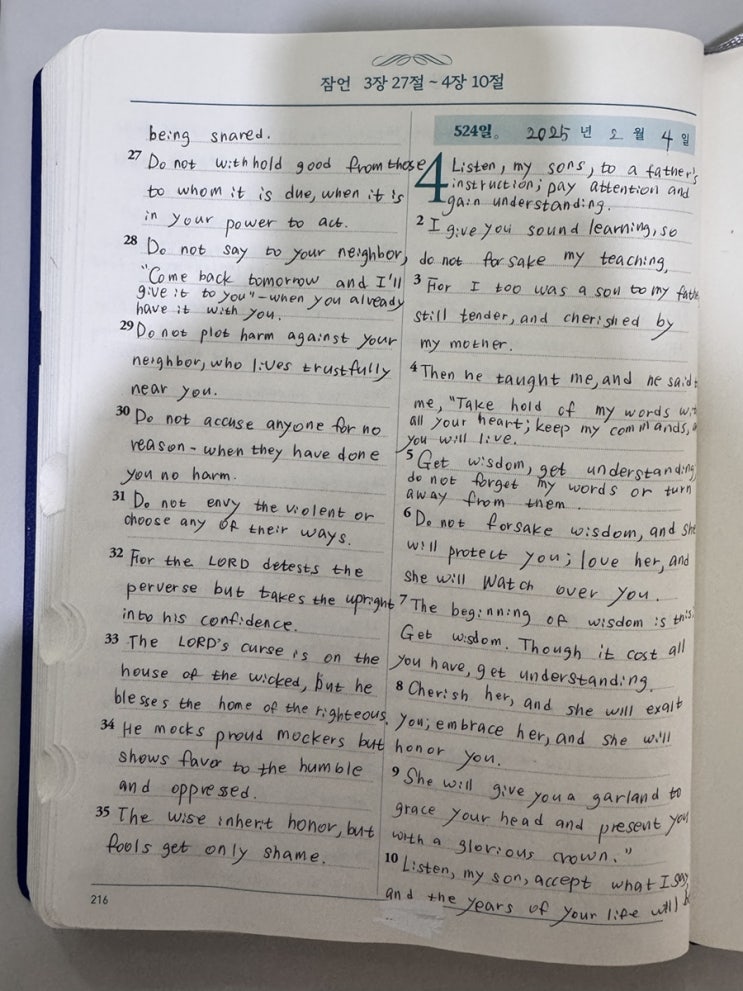 잠언 3장 27절 ~ 4장 10절
being snared.
27 Do not withhold good from those
to whom it is due, when it is
in your power to act.
28 Do not say to your neighbor,
"Come back tomorrow and I'll
give it to you" - when you already
have it with you.
29 Do not plot harm against your
neighbor, who lives trustfully
near you.
30 Do not accuse anyone for no
reason - when they have done
you no harm.
31 Do not envy the violent or
choose any of their ways.
32 For the LORD detests the
perverse but takes the upright
into his confidence.
33 The LORD's curse is on the
house of the wicked, but he
blesses the home of the righteous.
34 He mocks proud mockers but
shows favor to the humble
and oppressed.
35 The wise inherit honor, but
fools get only shame.
216
524일。 2025 년 2 월 4 일
4 Listen, my sons, to a father's
instruction; pay attention and
gain understanding.
2 I give you sound learning, so
do not forsake my teaching,
3 For I too was a son to my
still tender, and cherished by
my mother.
4 Then he taught me, and he said
me, "Take hold of my words
all your heart; keep my commands,
you will live.
5 Get wisdom, get understanding
do not forget my words or turn
away from them.
6 Do not forsake wisdom, and she
will protect you; love her, and
she will watch over you.
7 The beginning of wisdom is this:
Get wisdom. Though it cost all
you have, get understanding.
8 Cherish her, and she will exalt
you; embrace her, and she will
honor you.
9 She will give you a garland to
grace your head and present you
with a glorious crown."
10 Listen, my son, accept what I say,
and the years of your life will